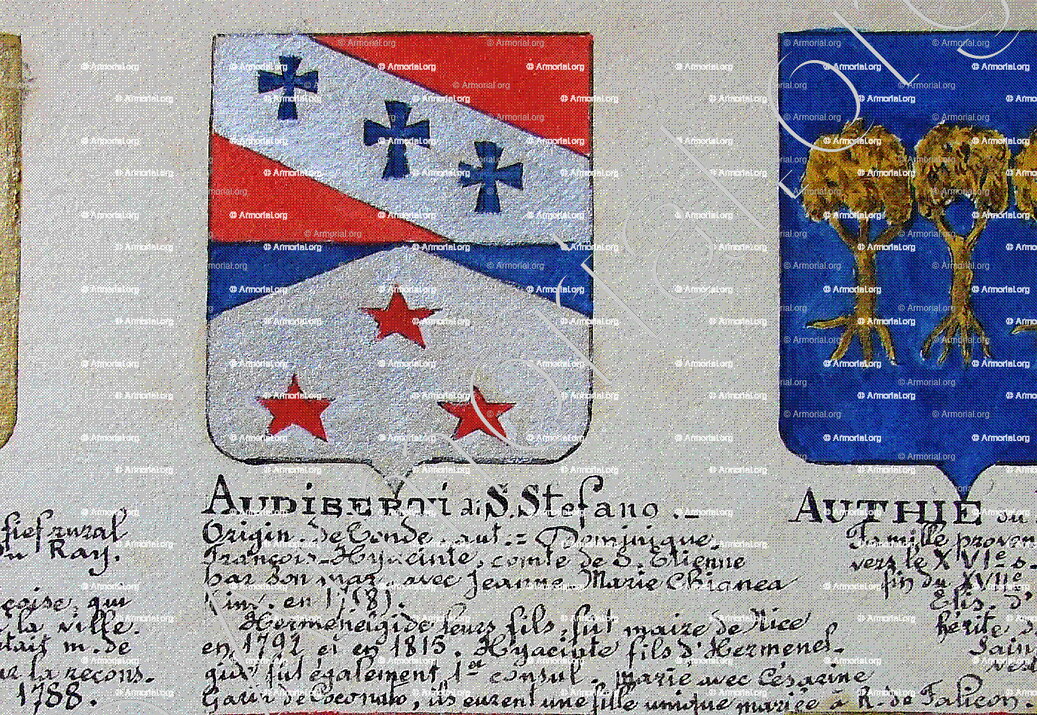 AUDIBERTI di S. Stefano . _
Origin. de Tende, aut. = Dominique.
François-Hyacinte, comte de S. Etienne
par son mar. avec Jeanne-Marie Chianea
(inv. en 1781).
Hermenegide leurs fils, fut maire de Nice
en 1792 et en 1815. Hyacinte fils d'Hermenel.
gide fut également 1er consul. marié avec Césarine
ils eurent une fille unique mariée à R. de Falicon.
fief rural
ou Ray.
çoise, qui
la ville.
tait m. de
la recons.
1788.
AUTHIE ou
Famille proven
vers le XVIe s.
fin du XVIIe
Elis. d'
hérite d
Sain
© Armorial.org